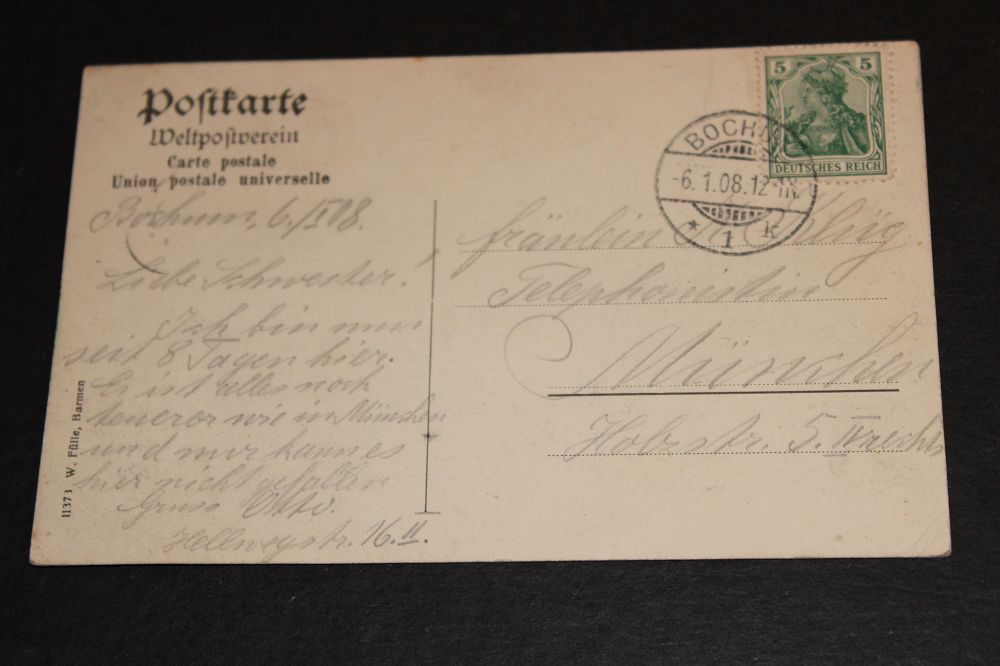 Postkarte
Weltpostverein
Carte postale
Union postale universelle
Bochum, 6./I 08.
Liebe Schwester!
Ich bin nun
seit 8 Tagen hier.
Es ist alles noch
teuerer wie in München
und mir kann es
hier nicht gefallen
Gruss Otto.
Hellwegstr. 16 II.
11373 W. Fülle, Barmen
5 5
DEUTSCHES REICH
BOCHUM
-6.1.08.12-1N.
* 1 k
Fräulein Klüg
Telephonistin
München
Holzstr. 5. IV rechts